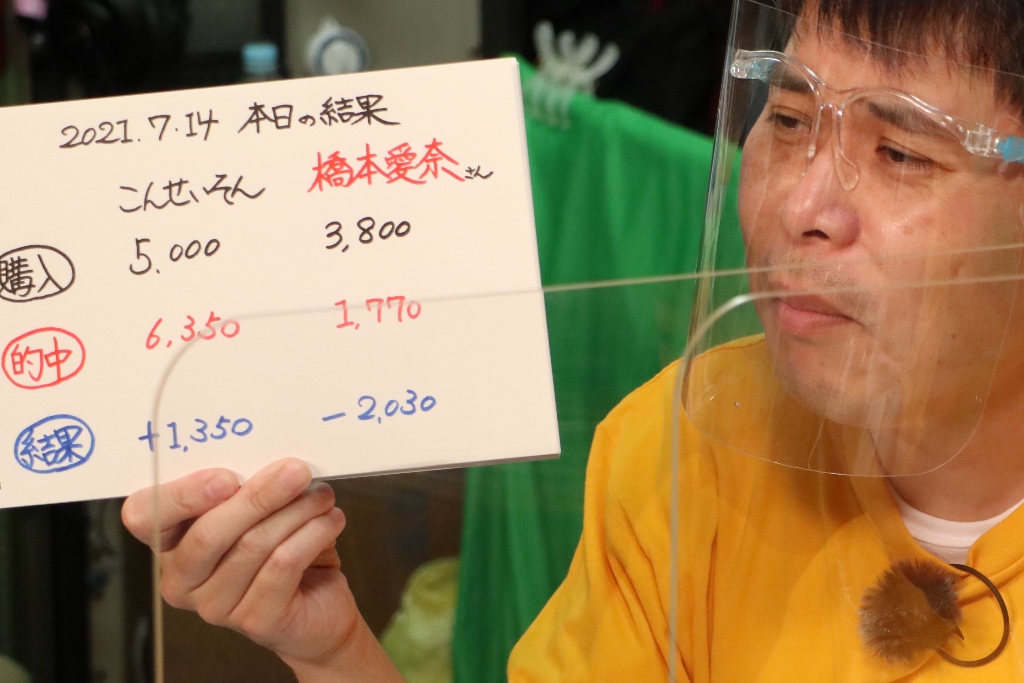 2021.7.14 本日の結果
こんせいそん 橋本愛奈さん
購入 5,000 3,800
的中 6,350 1,770
結果 +1,350 -2,030